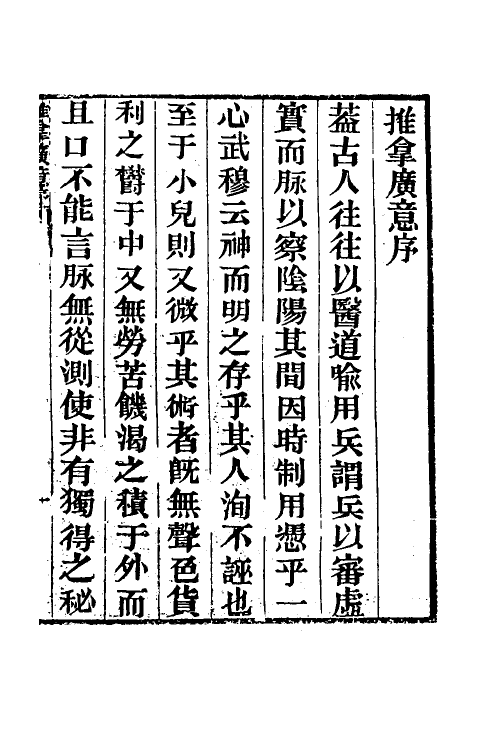 推拿廣意序
葢古人往往以醫道喻用兵謂兵以審虛
實而脉以察陰陽其間因時制用憑乎一
心武穆云神而明之存乎其人洵不誣也
至于小兒則又微乎其術者旣無聲色貨
利之欝于中又無勞苦饑渴之積于外而
且口不能言脉無從測使非有獨得之秘